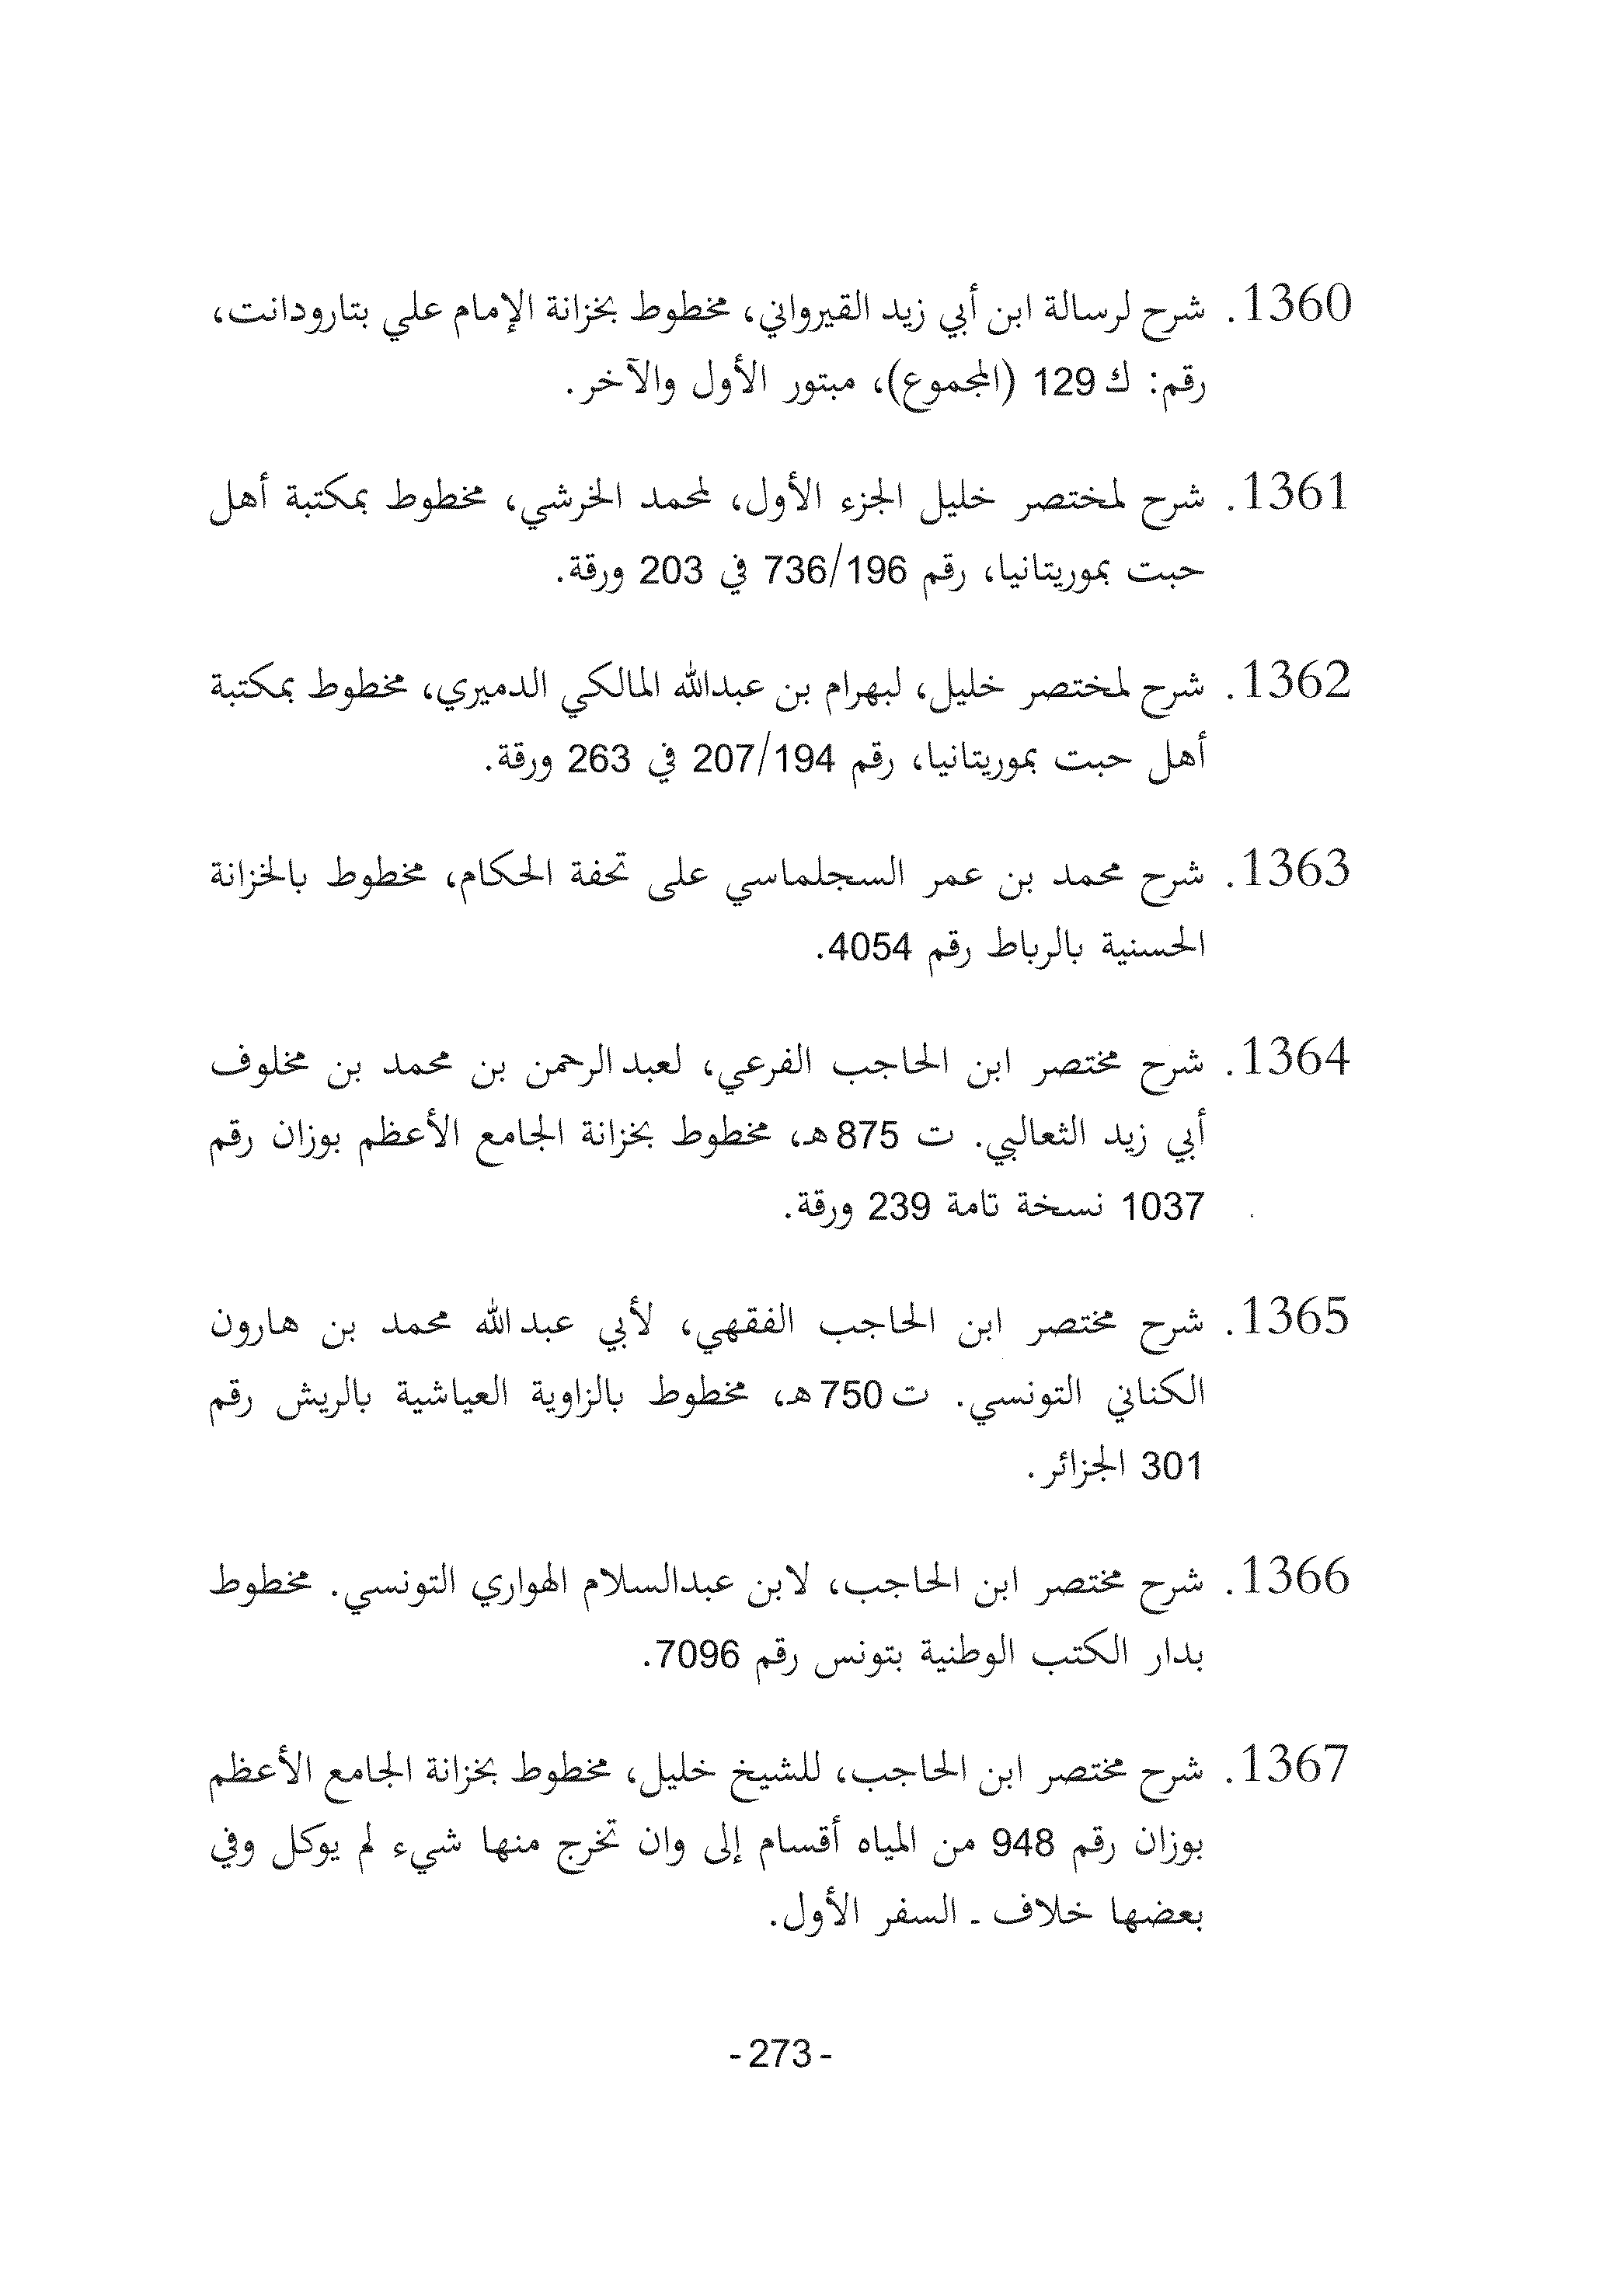 1360. شرح لرسالة ابن أبي زيد القيرواني، مخطوط بخزانة الإمام علي بتارودانت،
رقم: ك 129 (المجموع)، مبتور الأول والآخر.
1361. شرح لمختصر خليل الجزء الأول، لمحمد الخرشي، مخطوط بمكتبة أهل
حبت بموريتانيا، رقم 736/196 في 203 ورقة.
1362. شرح لمختصر خليل، لبهرام بن عبدالله المالكي الدميري، مخطوط بمكتبة
أهل حبت بموريتانيا، رقم 207/194 في 263 ورقة.
1363. شرح محمد بن عمر السجلماسي على تحفة الحكام، مخطوط بالخزانة
الحسنية بالرباط رقم 4054.
1364. شرح مختصر ابن الحاجب الفرعي، لعبدالرحمن بن محمد بن مخلوف
أبي زيد الثعالبي. ت 875هـ، مخطوط بخزانة الجامع الأعظم بوزان رقم
1037 نسخة تامة 239 ورقة.
1365. شرح مختصر ابن الحاجب الفقهي، لأبي عبدالله محمد بن هارون
الكناني التونسي. ت750هـ، مخطوط بالزاوية العياشية بالريش رقم
301 الجزائر.
1366. شرح مختصر ابن الحاجب، لابن عبدالسلام الهواري التونسي. مخطوط
بدار الكتب الوطنية بتونس رقم 7096.
1367. شرح مختصر ابن الحاجب، للشيخ خليل، مخطوط بخزانة الجامع الأعظم
بوزان رقم 948 من المياه أقسام إلى وان تخرج منها شيء لم يوكل وفي
بعضها خلاف ـ السفر الأول.
- 273 -